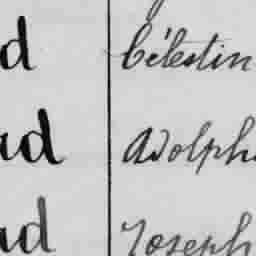 d Célestin
ad Adolph
ad Joseph